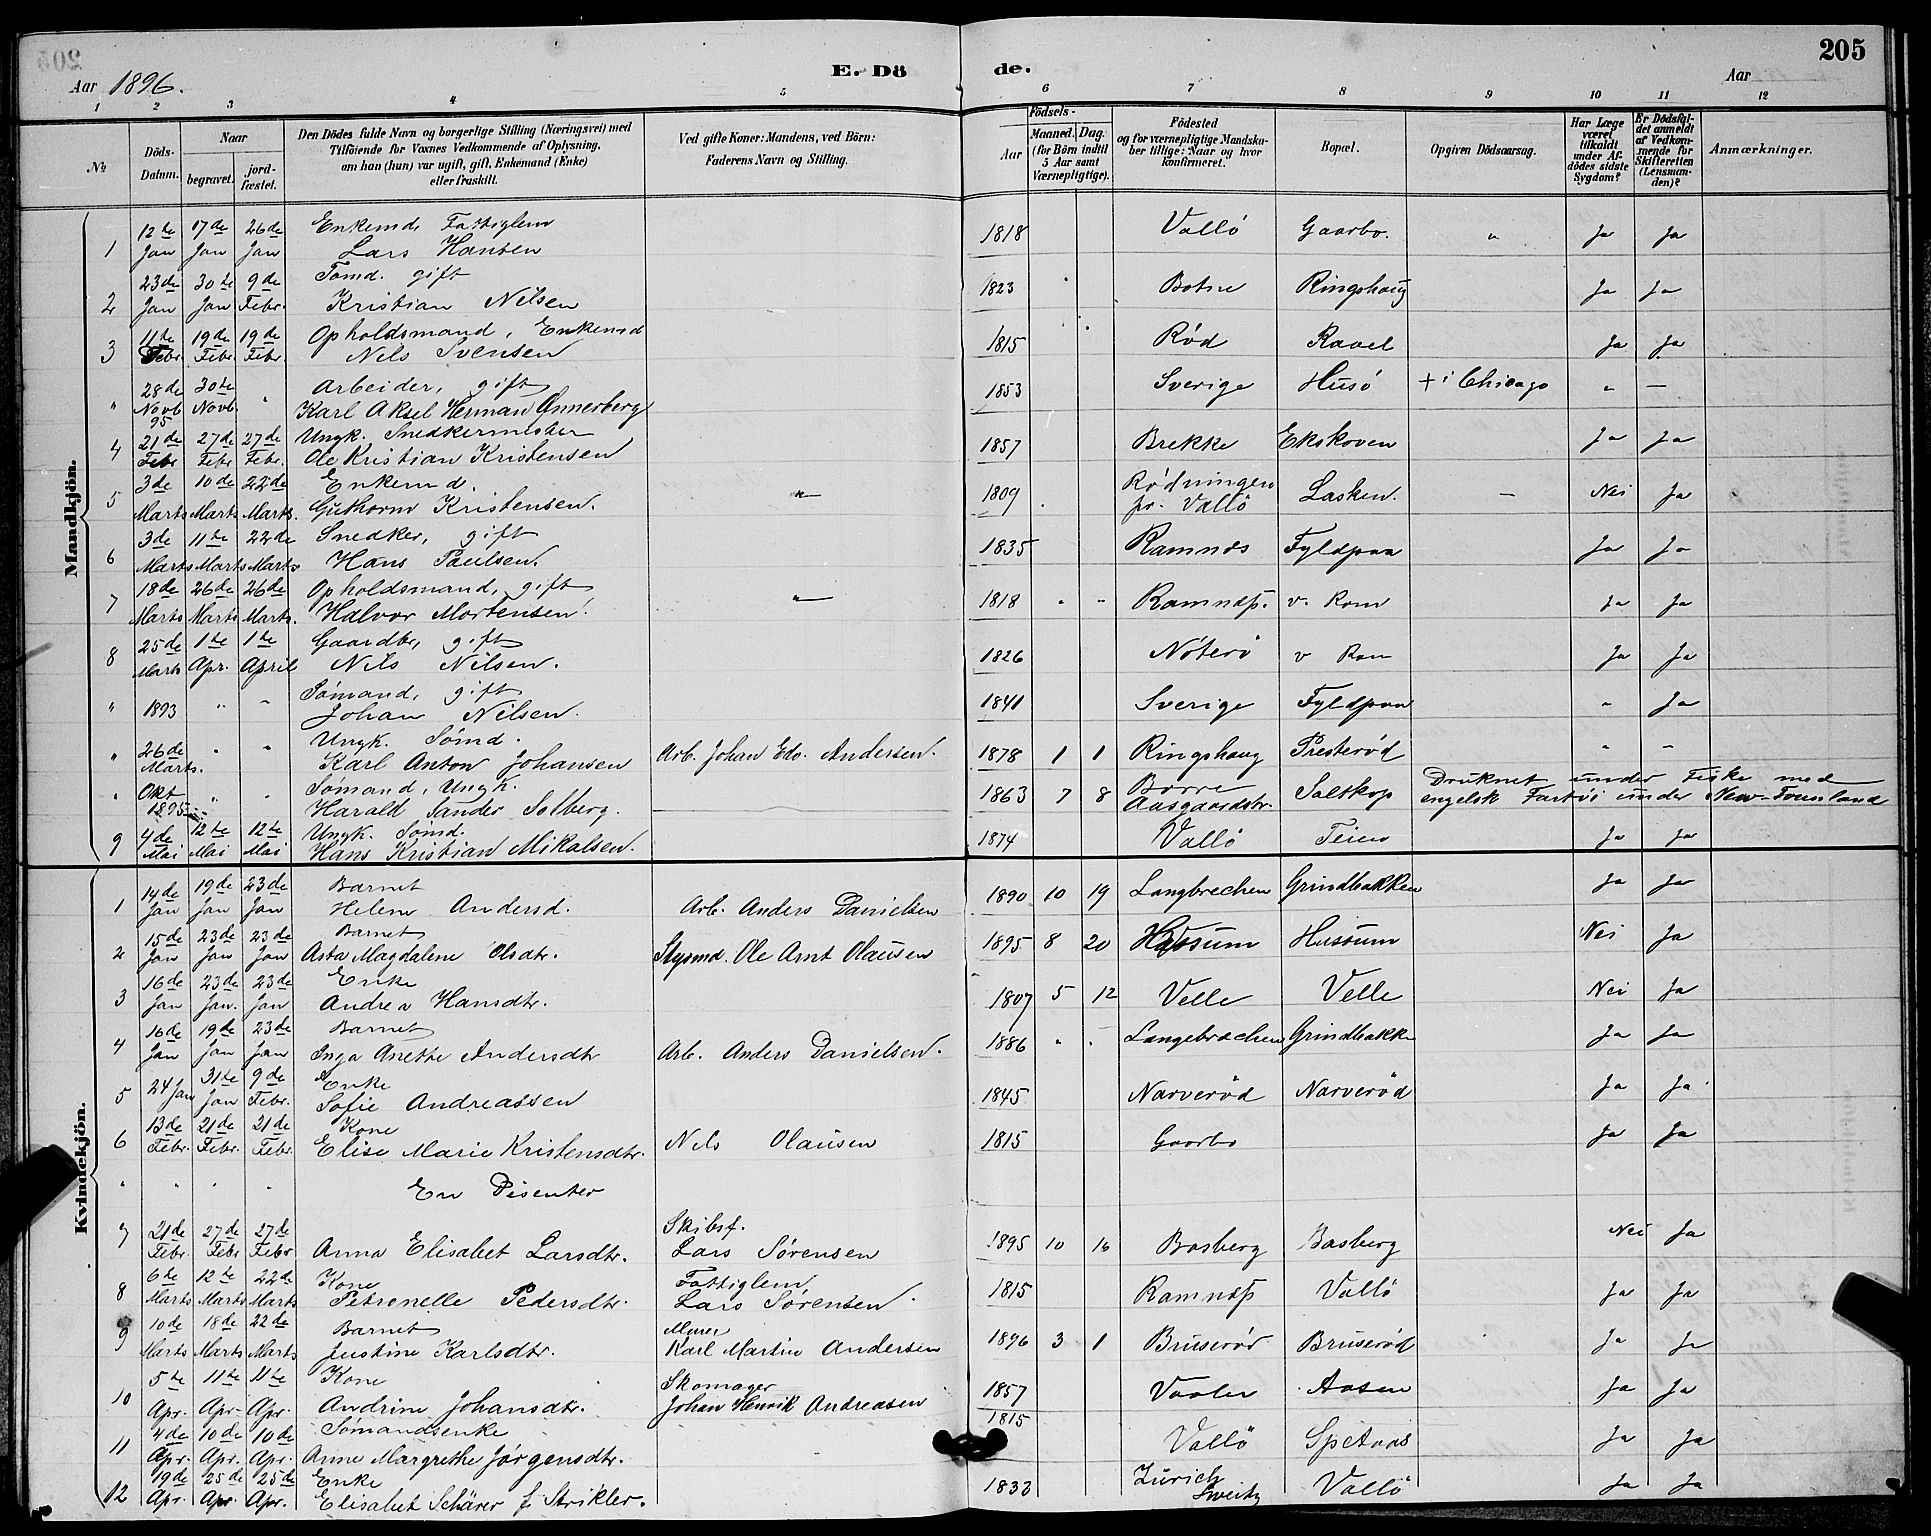 205
Aar 1896.
E. Dö de.
Aar
1 2 3 4 5 6 7 8 9 10 11 12
№ Döds-Datum. Naar begravet. jordfæstet. Den Dödes fulde Navn og borgerlige Stilling (Næringsvei) med Tilföiende for Voxnes Vedkommende af Oplysning, om han (hun) var ugift, gift, Enkemand (Enke) eller fraskilt. Ved gifte Koner: Mandens, ved Börn: Faderens Navn og Stilling. Födsels- Aar Maaned. Dag. (for Börn indtil 5 Aar samt Værnepligtige). Födested og for værnepligtige Mandskaber tillige: Naar og hvor konfirmeret. Bopæl. Opgiven Dödsaarsag. Har Læge været tilkaldt under Afdödes sidste Sygdom? Er Dödsfaldet anmeldt af Vedkommende for Skifteretten (Lensmanden)? Anmærkninger.
Mandkjön.
1 12te Jan 17de Jan 26de Jan Enkemd, Fattiglem Lars Hansen 1818 Vallö Gaarbo. " Ja Ja
2 23de Jan 30te Jan 9de Febr. Sømd. gift Kristian Nilsen 1823 Botne Ringshaug Ja Ja
3 11te Febr. 19de Febr 19de Febr. Opholdsmand, Enkemd Nils Svensen 1815 Rød Ravel Ja Ja
" 28de Novb 95 30te Novb. " Arbeider, gift Karl Aksel Herman Annerberg 1853 Sverige Husö + i Chicago " —
4 21de Febr 27de Febr 27de Febr. Ungk. Snedkermester Ole Kristian Kristensen 1857 Brekke Ekskoven Ja Ja
5 3de Marts 10de Marts 22de Marts. Enkemd. Guthorm Kristensen. " 1809 Rødningen pr. Vallö Lasken. — Nei Ja
6 3de Marts 11te Marts 22de Marts Snedker, gift Hans Paulsen. 1835 Ramnæs Fyldpaa Ja Ja
7 18de Marts 26de Marts 26de Marts. Opholdsmand, gift Halvor Mortensen. " 1818 " " Ramnæs. v. Rom Ja Ja
8 25de Marts 1te Apr. 1te April Gaardbr, gift Nils Nilsen. 1826 Nöterö v Rom Ja Ja
" 1893 " " Sømand, gift Johan Nilsen. 1841 Sverige Fyldpaa " Ja
" 26de Marts. " " Ungk. Sømd. Karl Anton Johansen Arb. Johan Edv. Andersen. 1878 1 1 Ringshaug Presterød " "
" Okt 1895 " " Sømand, Ungk. Harald Sander Solberg. 1863 7 8 Borre Aasgaardstr. Saltkop Druknet under Fiske med engelsk Fartöi under New-Founland
9 4de Mai 12te Mai 12te Mai Ungk. Sømd. Hans Kristian Mikalsen. 1874 Vallö Teien Ja Ja
Kvindekjön.
1 14de Jan 19de Jan 23de Jan Barnet Helene Andersd. Arb. Anders Danielsen 1890 10 19 Langbrechen Grindbakken Ja Ja
2 15de Jan 23de Jan 23de Jan Barnet Asta Magdalene Olsdtr. Stysmd. Ole Arnt Olausen 1895 8 20 Hussum Hussum Nei Ja
3 16de Jan 23de Jan. 23de Jan Enke Andrea Hansdtr. 1807 5 12 Velle Velle Nei Ja
4 16de Jan 19de Jan 23de Jan Barnet Inga Anette Andersdtr Arb. Anders Danielsen. 1886 " " Langebrechen Grindbakke Ja Ja
5 24 Jan 31te Jan 9de Febr. Enke Sofie Andreassen 1845 Narverød Narverød Ja Ja
6 13de Febr. 21de Febr. 21de Febr. Kone Elise Marie Kristensdtr. Nils Olausen 1815 Gaarbo Ja Ja
" " " " En Disenter
7 21de Febr. 27de Febr 27de Febr Anna Elisabet Larsdtr. Skibsf. Lars Sørensen 1895 10 16 Basberg Basberg Nei Ja
8 6te Marts 12te Marts 22de Marts Kone Petronelle Pedersdtr. Fattiglem Lars Sørensen. 1815 Ramnæs Vallö Ja Ja
9 10de Marts 18de Marts 22de Marts Barnet Justine Karlsdtr. Murer Karl Martin Andersen 1896 3 1 Bruserød Bruserød Ja Ja
10 5te Apr. 11te Apr. 11te Apr. Kone Andrine Johansdtr. Skomager Johan Henrik Andreasen 1857 Vaaler Aasen Ja Ja
11 4de Apr. 10de Apr. 10de Apr. Sømandsenke Anne Margrethe Jörgensdtr. 1815 Vallö Spetaas Ja Ja
12 19de Apr. 25de Apr. 25de Apr. Enke Elisabet Schärer f. Strikler. 1832 Zürich Sweitz Vallö Ja Ja